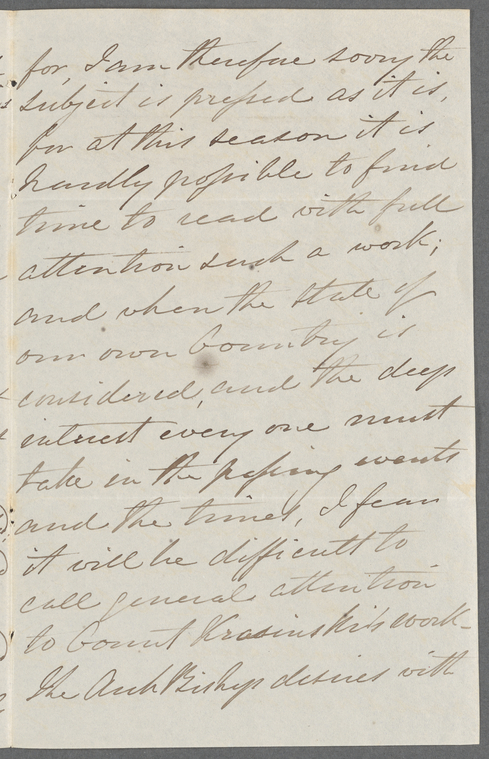 for, I am therefore sorry the
subject is pressed as it is,
for at this season it is
hardly possible to find
time to read with full
attention such a work;
and when the state of
our own Country is
considered, and the deep
interest every one must
take in the passing events
and the times, I fear
it will be difficult to
call general attention
to Count Krasinski's work–
The ArchBishop desires with